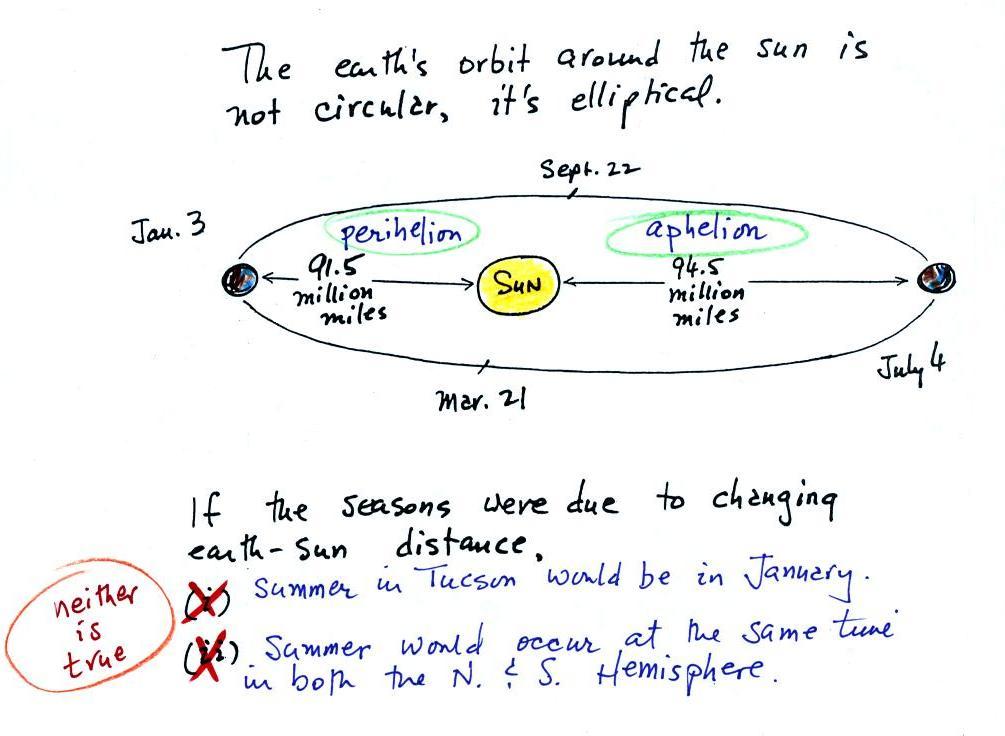 The earth's orbit around the sun is
not circular, it's elliptical.
Sept. 22
Jan. 3
perihelion
aphelion
91.5
million
miles
SUN
94.5
million
miles
July 4
Mar. 21
If the seasons were due to changing
earth-sun distance,
(i) Summer in Tucson would be in January.
(ii) Summer would occur at the same time
in both the N. & S. Hemisphere.
neither
is
true